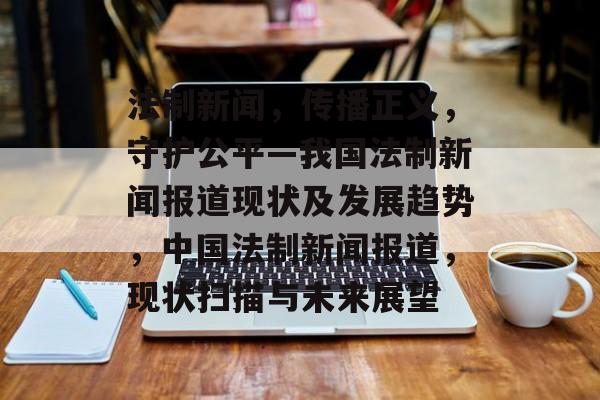 法制新闻，传播正义，
守护公平—我国法制新
闻报道现状及发展趋势
，中国法制新闻报道，
现状扫描与未来展望